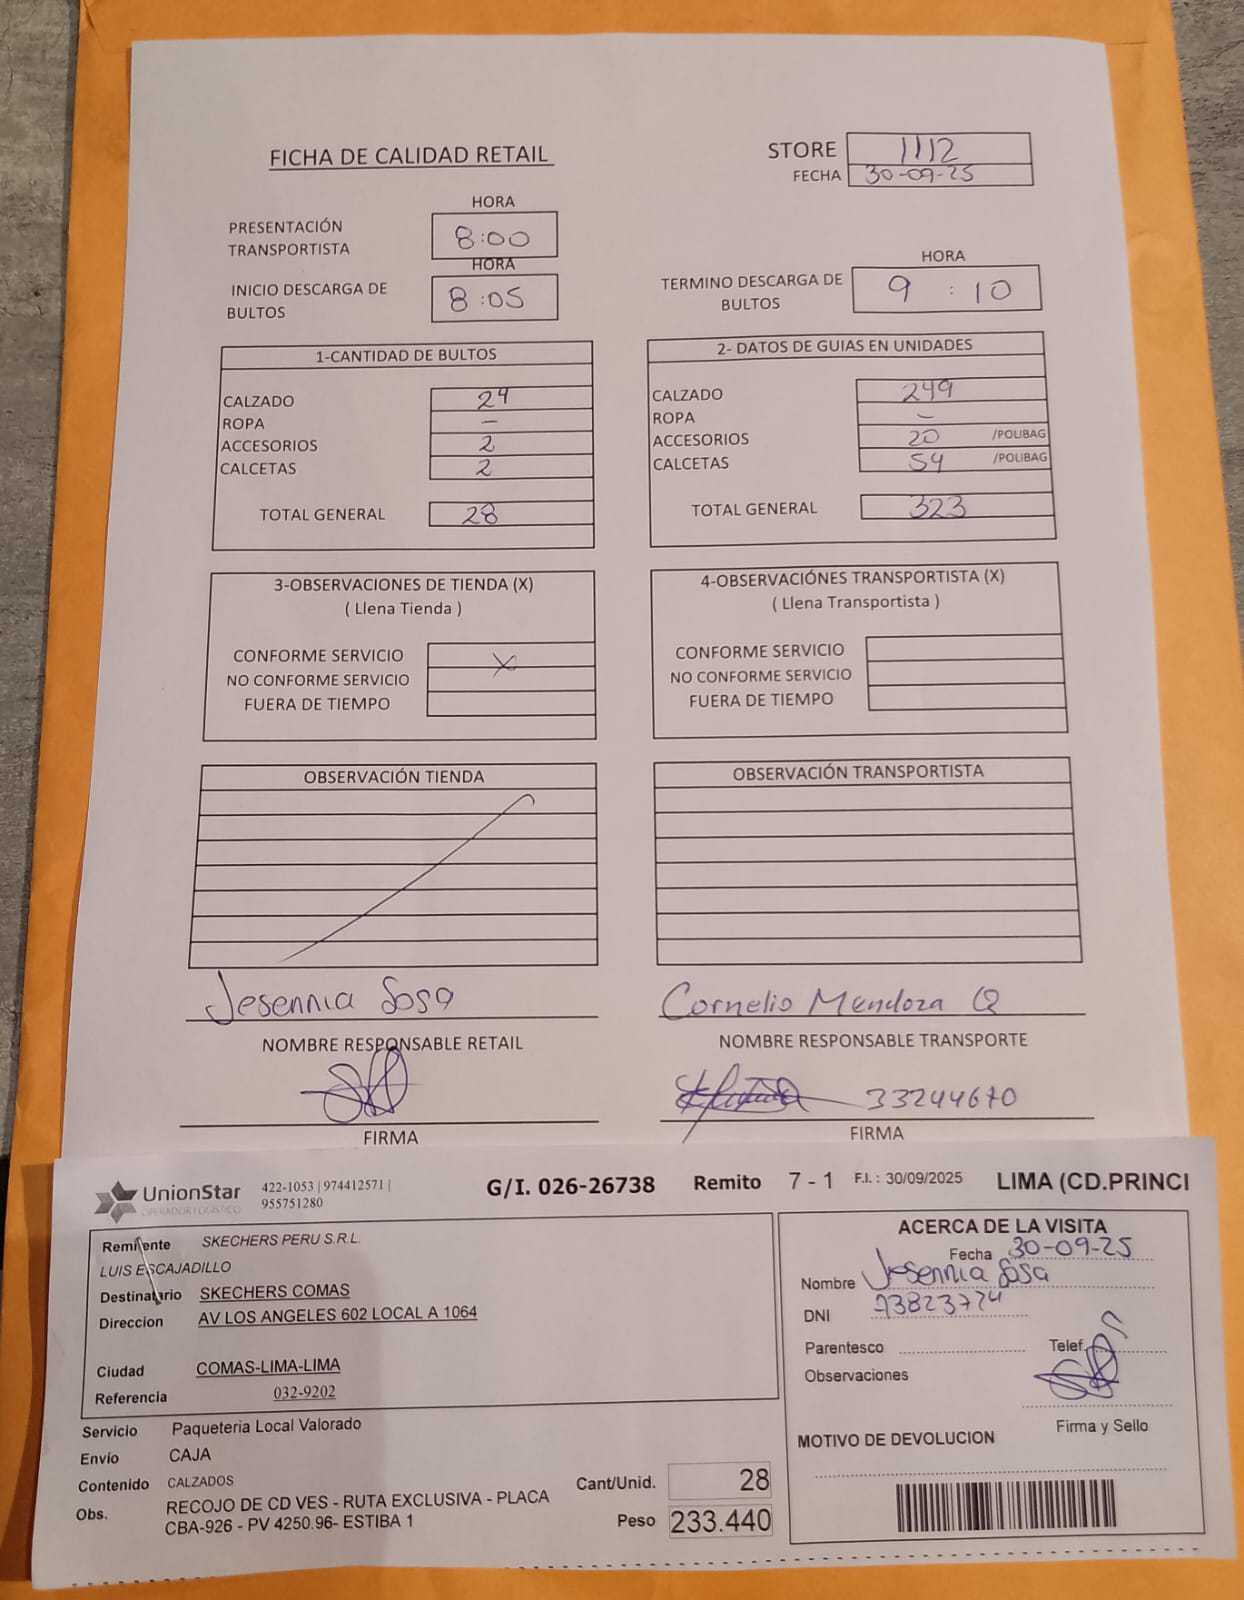 FICHA DE CALIDAD RETAIL
STORE 1112
FECHA 30-09-25
HORA
PRESENTACIÓN TRANSPORTISTA 8:00
HORA
INICIO DESCARGA DE BULTOS 8:05
HORA
TERMINO DESCARGA DE BULTOS 9:10
1-CANTIDAD DE BULTOS
CALZADO 24
ROPA -
ACCESORIOS 2
CALCETAS 2
TOTAL GENERAL 28
2- DATOS DE GUIAS EN UNIDADES
CALZADO 249
ROPA -
ACCESORIOS 20 /POLIBAG
CALCETAS 54 /POLIBAG
TOTAL GENERAL 323
3-OBSERVACIONES DE TIENDA (X)
( Llena Tienda )
CONFORME SERVICIO X
NO CONFORME SERVICIO
FUERA DE TIEMPO
4-OBSERVACIÓNES TRANSPORTISTA (X)
( Llena Transportista )
CONFORME SERVICIO
NO CONFORME SERVICIO
FUERA DE TIEMPO
OBSERVACIÓN TIENDA
OBSERVACIÓN TRANSPORTISTA
Jesennia Sosa
NOMBRE RESPONSABLE RETAIL
FIRMA
Cornelio Mendoza Q
NOMBRE RESPONSABLE TRANSPORTE
33244670
FIRMA
UnionStar
OPERADOR LOGÍSTICO
422-1053 | 974412571 |
955751280
G/I. 026-26738 Remito 7 - 1 F.I. : 30/09/2025 LIMA (CD.PRINCI
Remitente SKECHERS PERU S.R.L.
LUIS ESCAJADILLO
Destinatario SKECHERS COMAS
Direccion AV LOS ANGELES 602 LOCAL A 1064
Ciudad COMAS-LIMA-LIMA
Referencia 032-9202
Servicio Paqueteria Local Valorado
Envío CAJA
Contenido CALZADOS
Obs. RECOJO DE CD VES - RUTA EXCLUSIVA - PLACA
CBA-926 - PV 4250.96- ESTIBA 1
Cant/Unid. 28
Peso 233.440
ACERCA DE LA VISITA
Fecha 30-09-25
Nombre Jesennia Sosa
DNI 73823774
Parentesco Telef.
Observaciones
Firma y Sello
MOTIVO DE DEVOLUCION